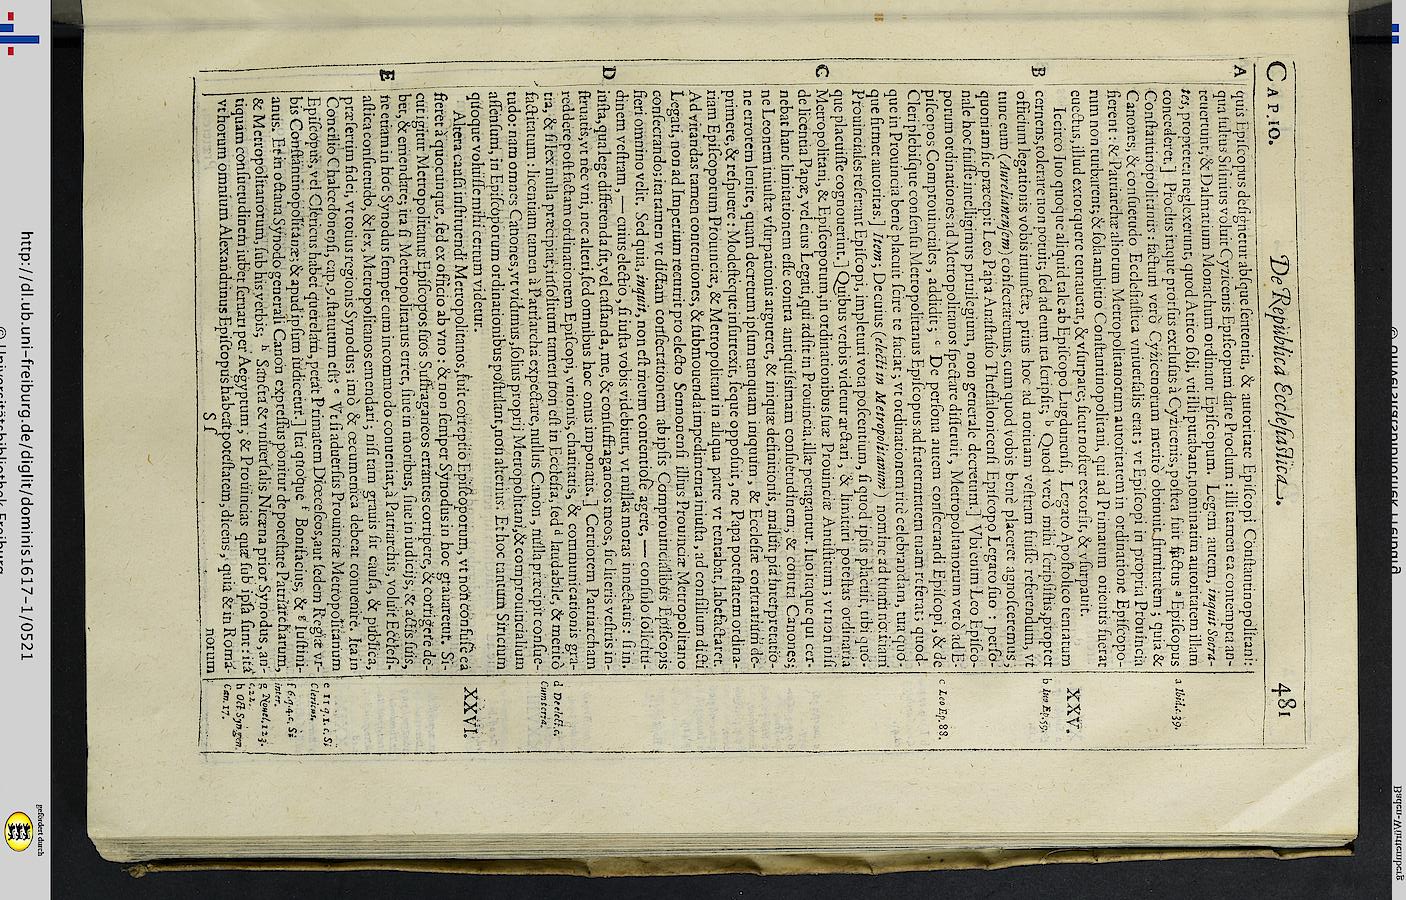 CAP. 10. De Republica Ecclesiastica. 481
A quis Episcopus designetur absque sententia, & autoritate Episcopi Constantinopolitani:
qua fultus Sisinius voluit Cyzicenis Episcopum dare Proclum: illi tamen ea contempta ad-
uenerunt, & Dalmatium Monachum ordinant Episcopum. Legem autem, inquit Socra-
tes, propterea neglexerunt, quod Attico soli, vt illi putabant, nominatim autoritatem illam
concederet.] Proclus itaque prorsus exclusus à Cyzicenis, postea fuit factus a Episcopus
Constantinopolitanus: factum verò Cyzicenorum meritò obtinuit firmitatem; quia &
Canones, & consuetudo Ecclesiastica vniuersalis erat; vt Episcopi in propria Prouincia
fierent: & Patriarchæ aliorum Metropolitanorum autoritatem in ordinatione Episcopo-
rum non turbarent; & sola ambitio Constantinopolitani, qui ad Primatum orientis fuerat
euectus, illud extorquere tentauerat, & vsurpare; sicut noster extorsit, & vsurpauit.
a Ibid. c. 39.
Iceirco Iuo quoque aliquid tale ab Episcopo Lugdunensi, Legato Apostolico tentatum
B cernens, tolerare non potuit; sed ad eum ita scripsit; b Quod verò mihi scripsistis, propter
officium legationis vobis iniunctæ, prius hoc ad notitiam vestram fuisse referendum, vt
tunc eum (Aureliunensem) consecraremus, cum quod vobis benè placeret agnosceremus;
XXV.
b Iuo Ep. 59.
quoniam sic præcepit Leo Papa Anastasio Thessalonicensi Episcopo Legato suo: perso-
nale hoc fuisse intelligimus priuilegium, non generale decretum.] Vbi enim Leo Episco-
porum ordinationes ad Metropolitanos spectare disseruit, Metropolitanorum verò ad E-
piscopos Comprouinciales, addidit; c De persona autem consecrandi Episcopi, & de
Cleri plebisque consensu Metropolitanus Episcopus ad fraternitatem tuam referat; quod-
que in Prouincia benè placuit scire te faciat; vt ordinationem ritè celebrandam, tua quo-
que firmet autoritas.] Item; De cuius (electi in Metropolitanum) nomine ad tuam notitiam
Prouinciales referant Episcopi, impleturi vota poscentium, si quod ipsis placuit, tibi quo-
que placuisse cognouerint.] Quibus verbis videtur arctari, & limitari potestas ordinaria
c Leo Ep. 88.
C Metropolitani, & Episcoporum, in ordinationibus suæ Prouinciæ Antistitum; vt non nisi
de licentia Papæ, vel eius Legati, qui adsit in Prouincia, illæ peragantur. Iuo itaque qui cer-
nebat hanc limitationem esse contra antiquissimam consuetudinem, & contra Canones;
ne Leonem iniustæ vsurpationis argueret, & iniquæ definitionis, maluit pia interpretatio-
ne errorem lenire, quam decretum ipsum tanquam iniquum, & Ecclesiæ contrarium de-
primere, & respuere: Modestèque insurrexit, seque opposuit, ne Papa potestatem ordina-
riam Episcoporum Prouinciæ, & Metropolitani in aliqua parte vt tentabat, labefactaret.
Ad vitandas tamen contentiones, & subinouenda impedimenta iniusta, ad consilium dicti
Legati, non ad Imperium recurrit pro electo Sennonensi illius Prouinciæ Metropolitano
consecrando; ita tamen vt dictam consecrationem ab ipsis Comprouincialibus Episcopis
fieri omnino velit. Sed quia, inquit, non est meum contentiosè agere, — consulo sollicitu-
D dinem vestram, — cuius electio, si iusta vobis videbitur, vt nullas moras innectatis: si in-
iusta, qua lege differenda sit, vel cassanda, me, & consuffraganeos meos, sic literis vestris in-
struatis, vt nec vni, nec alteri, sed omnibus hoc onus imponatis.] Certiorem Patriarcham
reddere post factam ordinationem Episcopi, vnionis, charitatis, & communicationis gra-
tia, & si lex nulla præcipiat, insolitum tamen non est in Ecclesia, sed d laudabile, & meritò
factitatum: licentiam tamen à Patriarcha expectare, nullus Canon, nulla præcipit consue-
tudo: nam omnes Canones, vt vidimus, solius proprij Metropolitani, & comprouincialium
assensum, in Episcoporum ordinationibus postulant, non alterius: Et hoc tantum Siricium
quoque voluisse mihi certum videtur.
d De elect. c.
Cum terra.
Altera causa instituendi Metropolitanos, fuit correptio Episcoporum, vt non confuse ea
fieret à quocunque, sed ex officio ab vno: & non semper Synodus in hoc grauaretur. Si-
cut igitur Metropolitanus Episcopos suos Suffraganeos errantes corripere, & corrigere de-
XXVI.
E bet, & emendare; ita si Metropolitanus erret, siue in moribus, siue in iudicijs, & actis suis,
ne etiam in hoc Synodus semper cum incommodo conueniat, à Patriarchis, voluit Ecclesi-
astica consuetudo, & lex, Metropolitanos emendari; nisi tam grauis sit causa, & publica,
præsertim fidei, vt totius regionis Synodus; imò & œcumenica debeat conuenire. Ita in
Concilio Chalcedonensi, cap. 9. statutum est; e Vt si aduersus Prouinciæ Metropolitanum
Episcopus, vel Clericus habet querelam, petat Primatem Diœceseos, aut sedem Regiæ vr-
bis Constantinopolitanæ; & apud ipsum iudicetur.] Ita quoque f Bonifacius, & g Iustini-
anus. Et in octaua Synodo generali Canon expressus ponitur de potestate Patriarcharum,
& Metropolitanorum, sub his verbis; h Sancta & vniuersalis Nicæna prior Synodus, an-
tiquam consuetudinem iubet seruari per Aegyptum, & Prouincias quæ sub ipsa sunt: ita
vt horum omnium Alexandrinus Episcopus habeat potestatem, dicens, quia & in Roma-
S s norum
e 11. q. 1. c. Si
Clericus.
f 6. q. 4. c. Si
inter.
g Nouel. 123.
c. 22.
h Oct. Syn. gen.
Can. 17.
http://dl.ub.uni-freiburg.de/diglit/dominis1617-1/0521
© Universitätsbibliothek Freiburg
gefördert durch